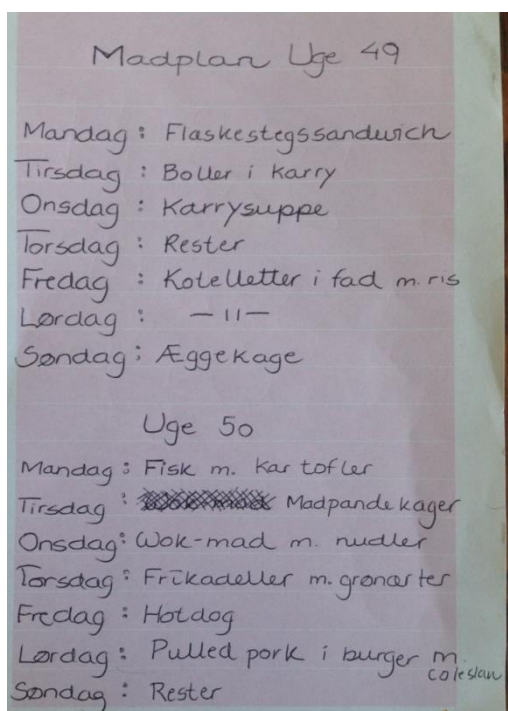 Madplan Uge 49
Mandag : Flaskestegssandwich
Tirsdag : Boller i karry
Onsdag : Karrysuppe
Torsdag : Rester
Fredag : Kotelletter i fad m. ris
Lørdag : — 11 —
Søndag : Æggekage
Uge 50
Mandag : Fisk m. kartofler
Tirsdag : Madpandekager
Onsdag : Wok-mad m. nudler
Torsdag : Frikadeller m. grønærter
Fredag : Hotdog
Lørdag : Pulled pork i burger m.
coleslaw
Søndag : Rester